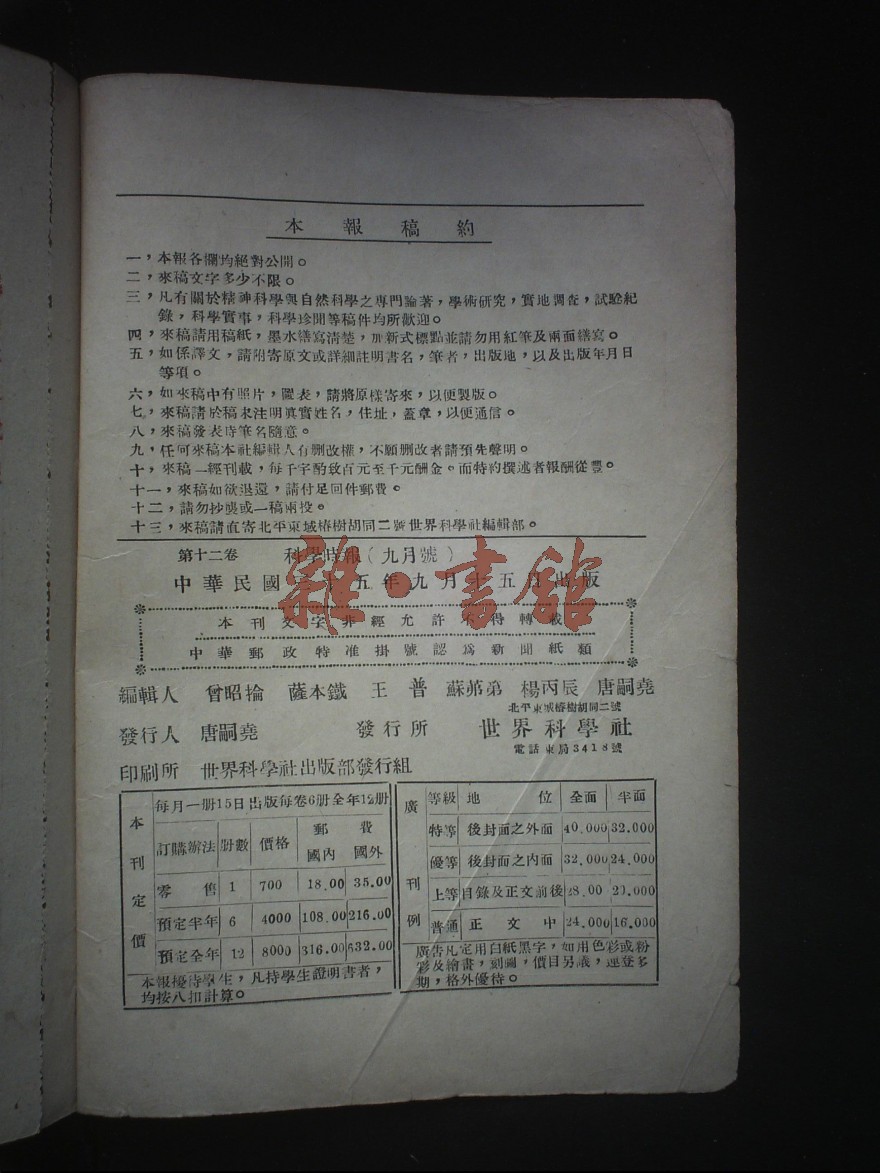 本報稿約
一，本報各欄均絕對公開。
二，來稿文字多少不限。
三，凡有關於精神科學與自然科學之專門論著，學術研究，實地調查，試驗紀
錄，科學實事，科學珍聞等稿件均所歡迎。
四，來稿請用稿紙，墨水繕寫清楚，加新式標點並請勿用紅筆及兩面繕寫。
五，如係譯文，請附寄原文或詳細註明書名，筆者，出版地，以及出版年月日
等項。
六，如來稿中有照片，圖表，請將原樣寄來，以便製版。
七，來稿請於稿末注明眞實姓名，住址，蓋章，以便通信。
八，來稿發表時筆名隨意。
九，任何來稿本社編輯人有删改權，不願删改者請預先聲明。
十，來稿一經刊載，每千字酌致百元至千元酬金。而特約撰述者報酬從豐。
十一，來稿如欲退還，請付足回件郵費。
十二，請勿抄襲或一稿兩投。
十三，來稿請直寄北平東城椿樹胡同二號世界科學社編輯部。
第十二卷 科學時報（九月號）
中華民國三十五年九月十五日出版
雜·書館
本刊文字非經允許不得轉載
中華郵政特准掛號認爲新聞紙類
編輯人 曾昭掄 薩本鐵 王普 蘇茀第 楊丙辰 唐嗣堯
北平東城椿樹胡同二號
發行人 唐嗣堯 發行所 世界科學社
電話東局3418號
印刷所 世界科學社出版部發行組
本刊定價
每月一册15日出版每卷6册全年12册
訂購辦法 册數 價格 郵費 國內 國外
零售 1 700 18.00 35.00
預定半年 6 4000 108.00 216.00
預定全年 12 8000 316.00 632.00
本報優待學生，凡持學生證明書者，
均按八扣計算。
廣告刊例
等級 地位 全面 半面
特等 後封面之外面 40.000 32.000
優等 後封面之內面 32.000 24.000
上等 目錄及正文前後 28.00 20.000
普通 正文中 24.000 16.000
廣告凡定用白紙黑字，如用色彩或粉
彩及繪畫，刻圖，價目另議，連登多
期，格外優待。